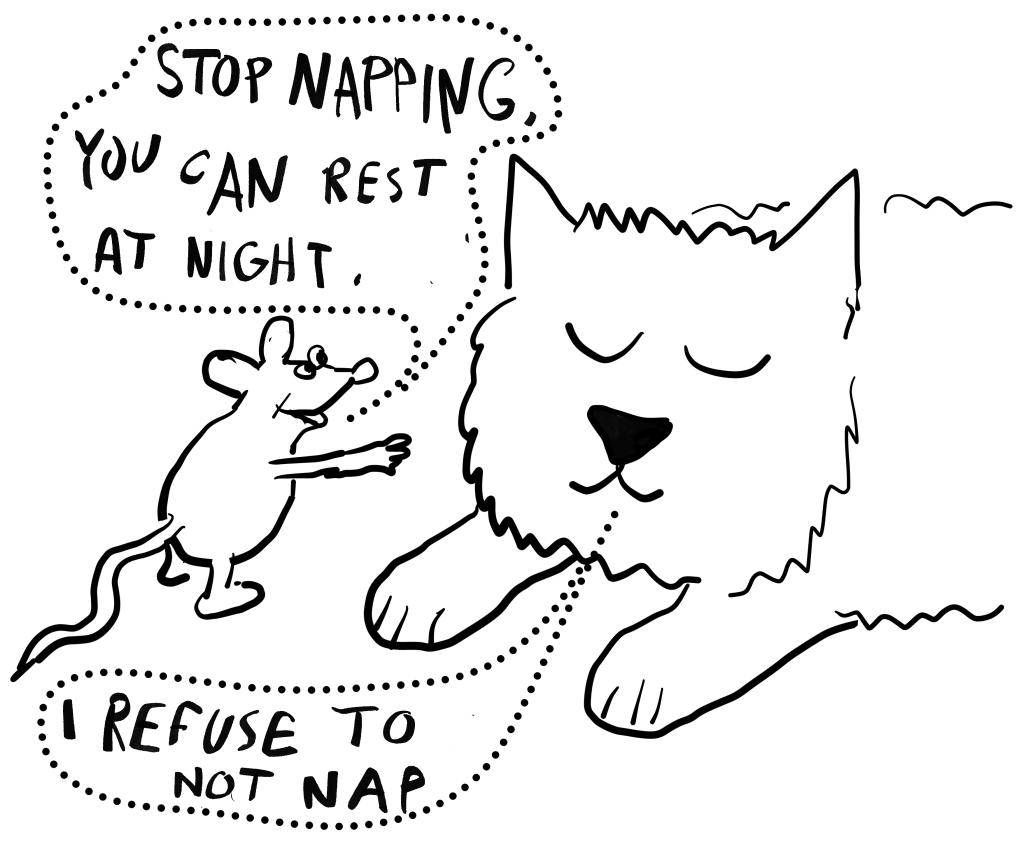 STOP NAPPING,
YOU CAN REST
AT NIGHT.
I REFUSE TO
NOT NAP